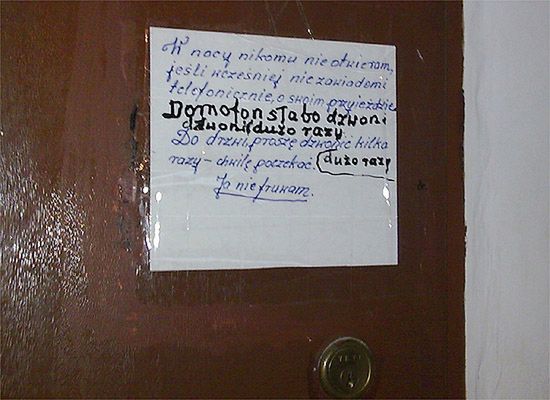 W nocy nikomu nie otwieram,
jeśli wcześniej nie zawiadomi
telefonicznie, o swoim przyjeździe
Domofon słabo dzwoni
dzwonić dużo razy
Do drzwi, proszę dzwonić kilka
razy - chwilę poczekać. dużo razy
Ja nie fruwam.